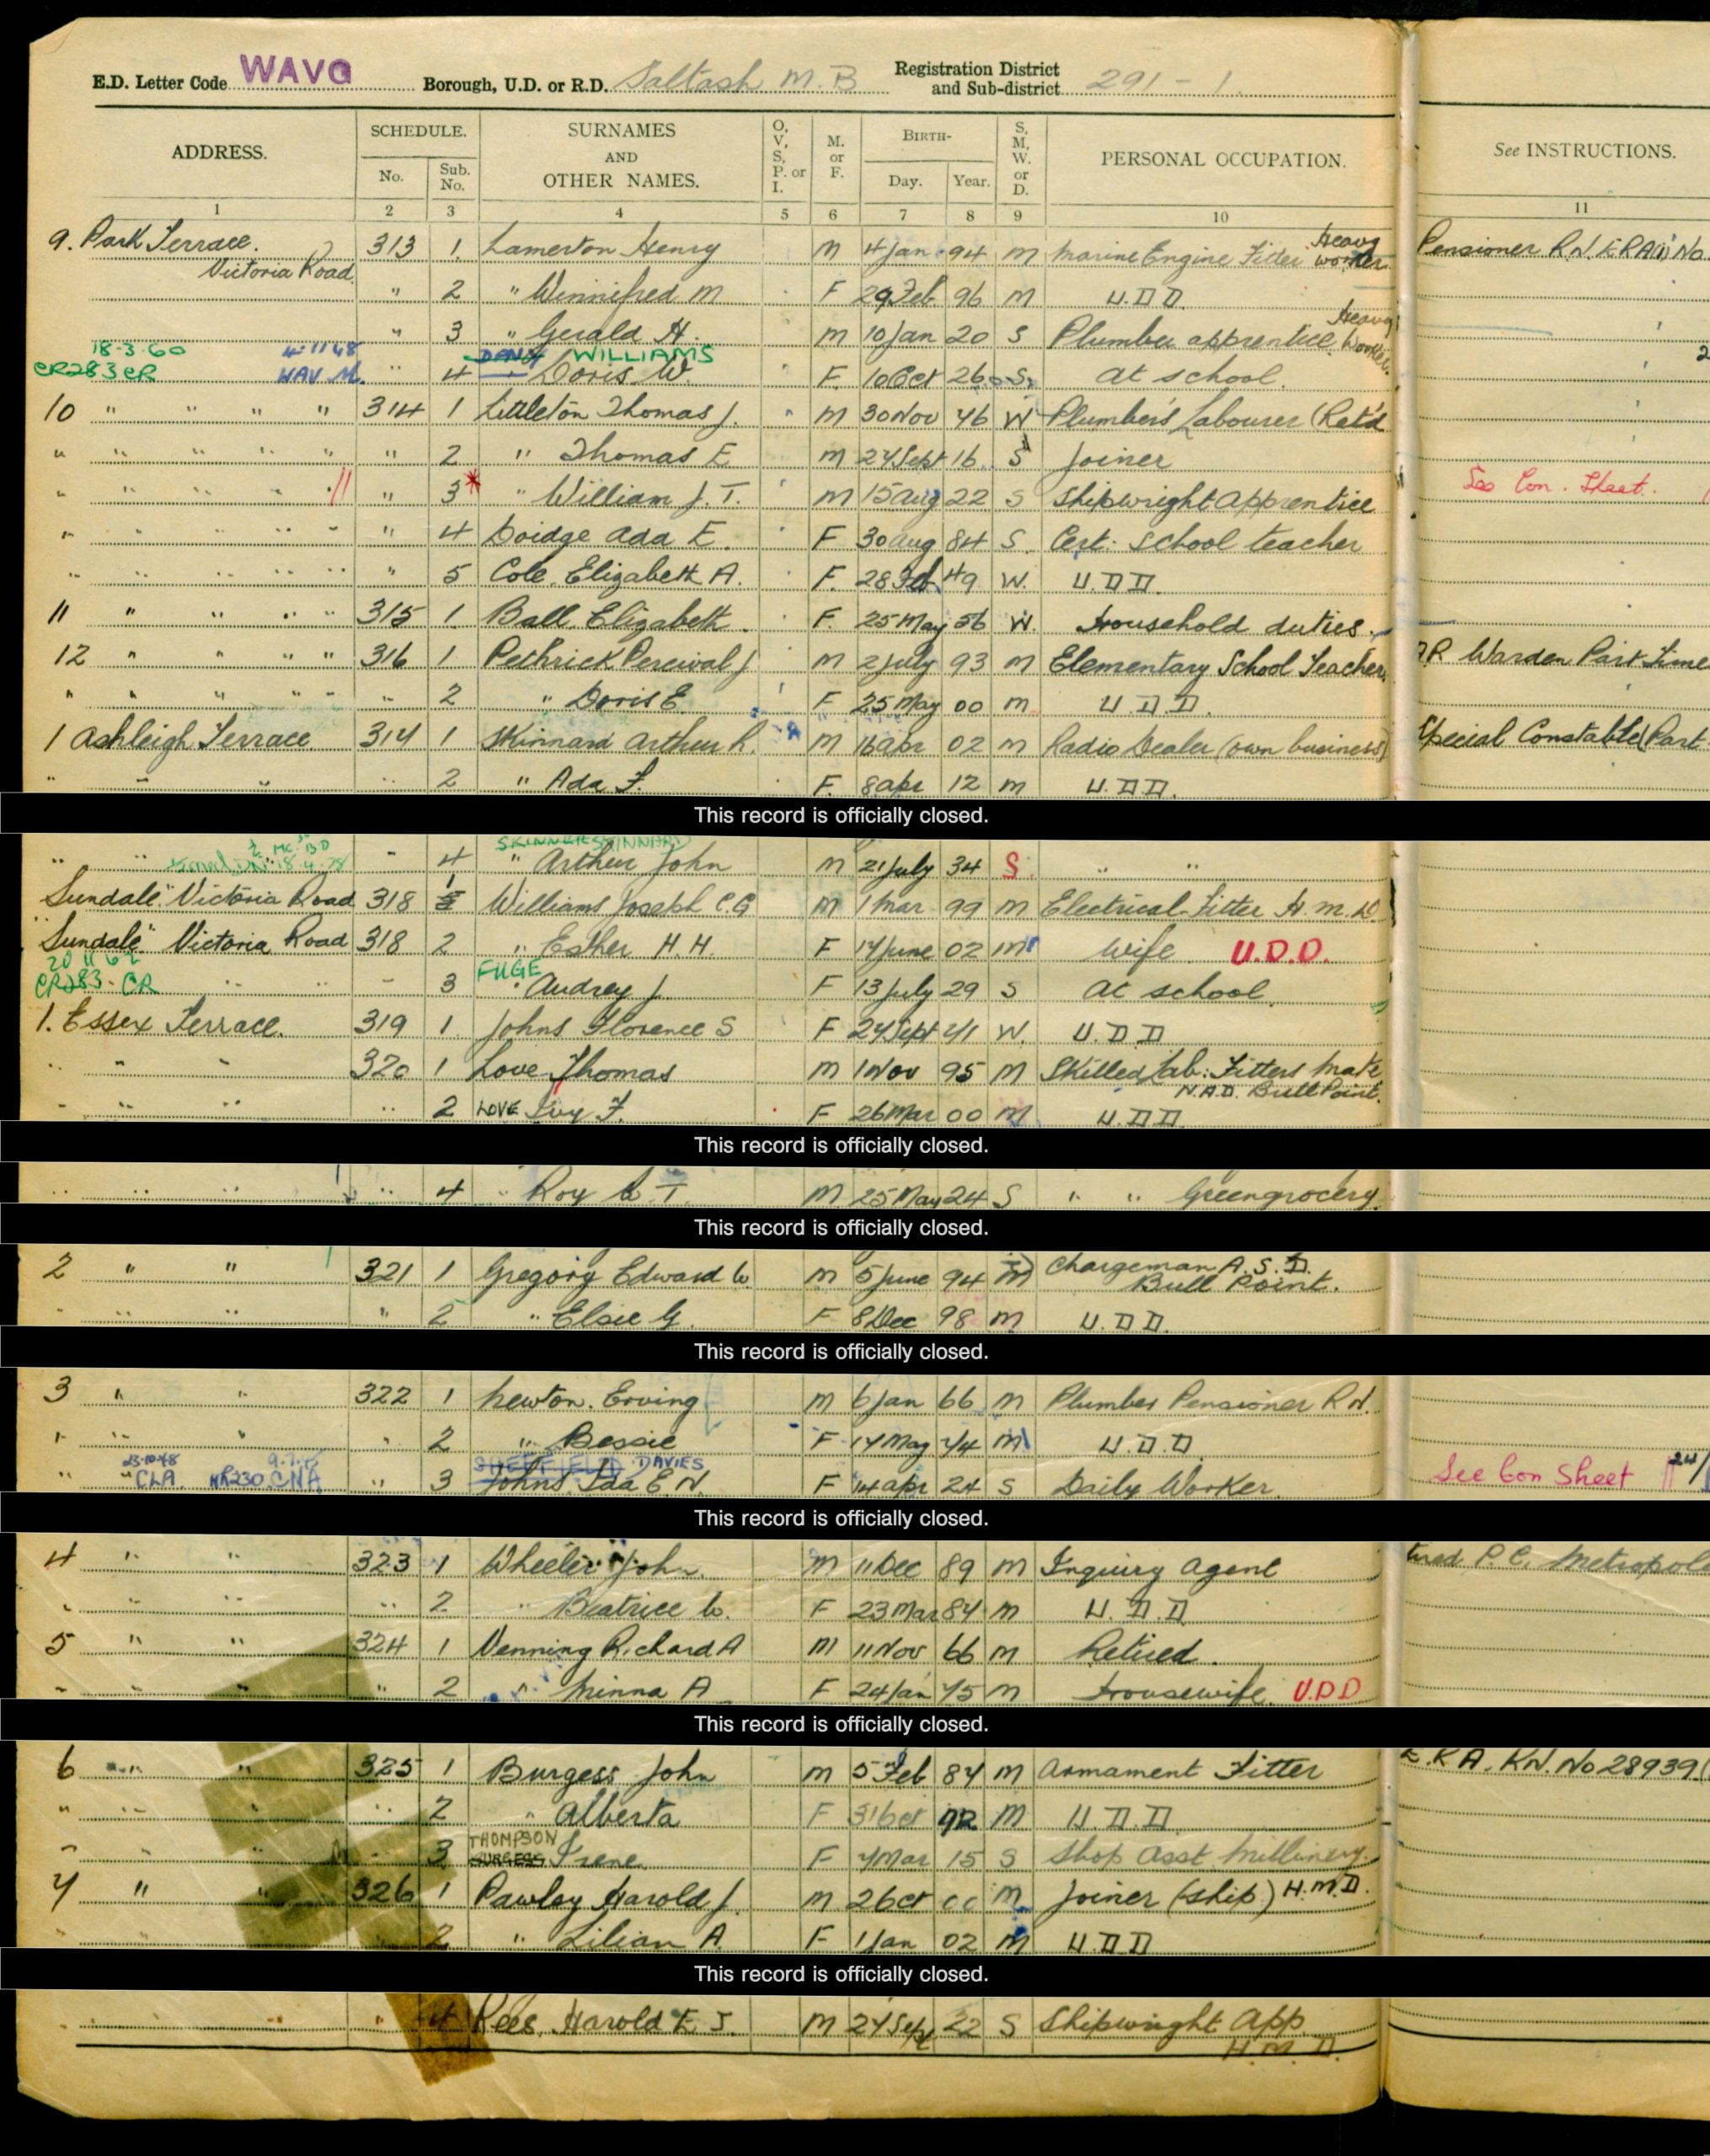 E.D. Letter Code WAVQ Borough, U.D. or R.D. Saltash M.B Registration District and Sub-district 291 - 1.
ADDRESS. SCHEDULE. No. Sub. No. SURNAMES AND OTHER NAMES. O, V, S, P. or I. M. or F. BIRTH- Day. Year. S, M, W. or D. PERSONAL OCCUPATION. See INSTRUCTIONS.
1 2 3 4 5 6 7 8 9 10 11
9. Park Terrace. 313 1. Lamerton Henry M 4 Jan 94 M Marine Engine Fitter Heavy worker Pensioner R.N. E.R.A(1) No
Victoria Road
" 2 " Winnifred M F 29 Feb 96 M U.D.D.
" 3 " Gerald H. M 10 Jan 20 S Plumber apprentice Heavy Worker.
18-3-60 4-11-48 WILLIAMS
CR283 CR WAV M. " 4 " Doris W. F. 10 Oct 26 S. At school.
10 " " " " 314 1 Littleton Thomas J. M 30 Nov 76 W Plumbers Labourer (Ret'd
" " " " " " 2 " Thomas E M 27 Sept 16 S Joiner
" " " " " // " 3 * " William J. T. M 15 Aug 22 S Shipwright Apprentice See Con. Sheet.
" " " " " " 4 Doidge Ada E. F 30 Aug 84 S. Cert. School teacher
" " " " " " 5 Cole Elizabeth A. F. 28 Feb 49 W. U.D.D.
11 " " " " 315 1. Ball Elizabeth F. 25 May 56 W. Household duties.
12 " " " " 316 1 Pethrick Percival J M 2 July 93 M Elementary School Teacher. Warden Part Time
" " " " " " 2 " Doris E. F 25 May 00 M U.D.D.
1 Ashleigh Terrace. 317 1 Skinnard Arthur R. M 16 Apr 02 M Radio Dealer (own business) Special Constable (Part
" " " " 2 " Ada F. F. 8 Apr 12 M U.D.D.
This record is officially closed.
" " " 4 " Arthur John M 21 July 34 S " "
"Sundale" Victoria Road 318 1 Williams Joseph C.G M 1 Mar 99 M Electrical Fitter H.M.D.
"Sundale" Victoria Road 318 2 " Esher H.H. F 17 June 02 M Wife U.D.D.
20 11 6
CR283 - CR " " " 3 FUGE " Audrey J F 13 July 29 S At school.
1. Essex Terrace. 319 1. Johns Florence S F 27 Sept 71 W. U.D.D
" " " 320 1 Love Thomas M 1 Nov 95 M Skilled Lab: Fitters Mate
N.A.D. Bull Point.
" " " " 2 LOVE Ivy F. F 26 Mar 00 M U.D.D.
This record is officially closed.
" " " " 4 " Roy T. M 25 May 24 S " " Greengrocery.
This record is officially closed.
2 " " 321 1 Gregory Edward W M 5 June 94 M Chargeman A.S.D.
Bull Point.
" " " " 2 " Elsie G. F 8 Dec 98 M U.D.D.
This record is officially closed.
3 " " 322 1 Newton. Erving M 6 Jan 66 M Plumber Pensioner R.N.
" " " " 2 " Bessie F 17 May 74 M U.D.D
23-10-48 SHEFFIELD DAVIES
" " CLA. CNA " 3 Johns Ida E.N. F 14 Apr 24 S Daily Worker. See Con Sheet 24/
This record is officially closed.
4 " " 323 1 Wheeler John. M 11 Dec 89 M Inquiry Agent P.C. Metropol
" " " " 2 " Beatrice W. F 23 Mar 84 M U.D.D
5 " " 324 1 Venning Richard A M 11 Nov 66 M Retired.
" " " " 2 " Minna A F 24 Jan 75 M Housewife. U.D.D
This record is officially closed.
6 " " 325 1 Burgess John M 5 Feb 87 M Armament Fitter E.R.A. R.N. No 28939
" " " " 2 " Alberta F 31 Oct 92 M U.D.D.
THOMPSON
" " " " 3 BURGESS Irene F 7 Mar 15 S Shop Asst Millinery.
7 " " 326 1 Pawley Harold J. M 2 Oct 00 M Joiner (ship) H.M.D.
" " " " 2 " Lilian A F 1 Jan 02 M U.D.D
This record is officially closed.
" " " " 4 Rees, Harold E. J. M 27 Sept 22 S Shipwright App.
H.M.D.